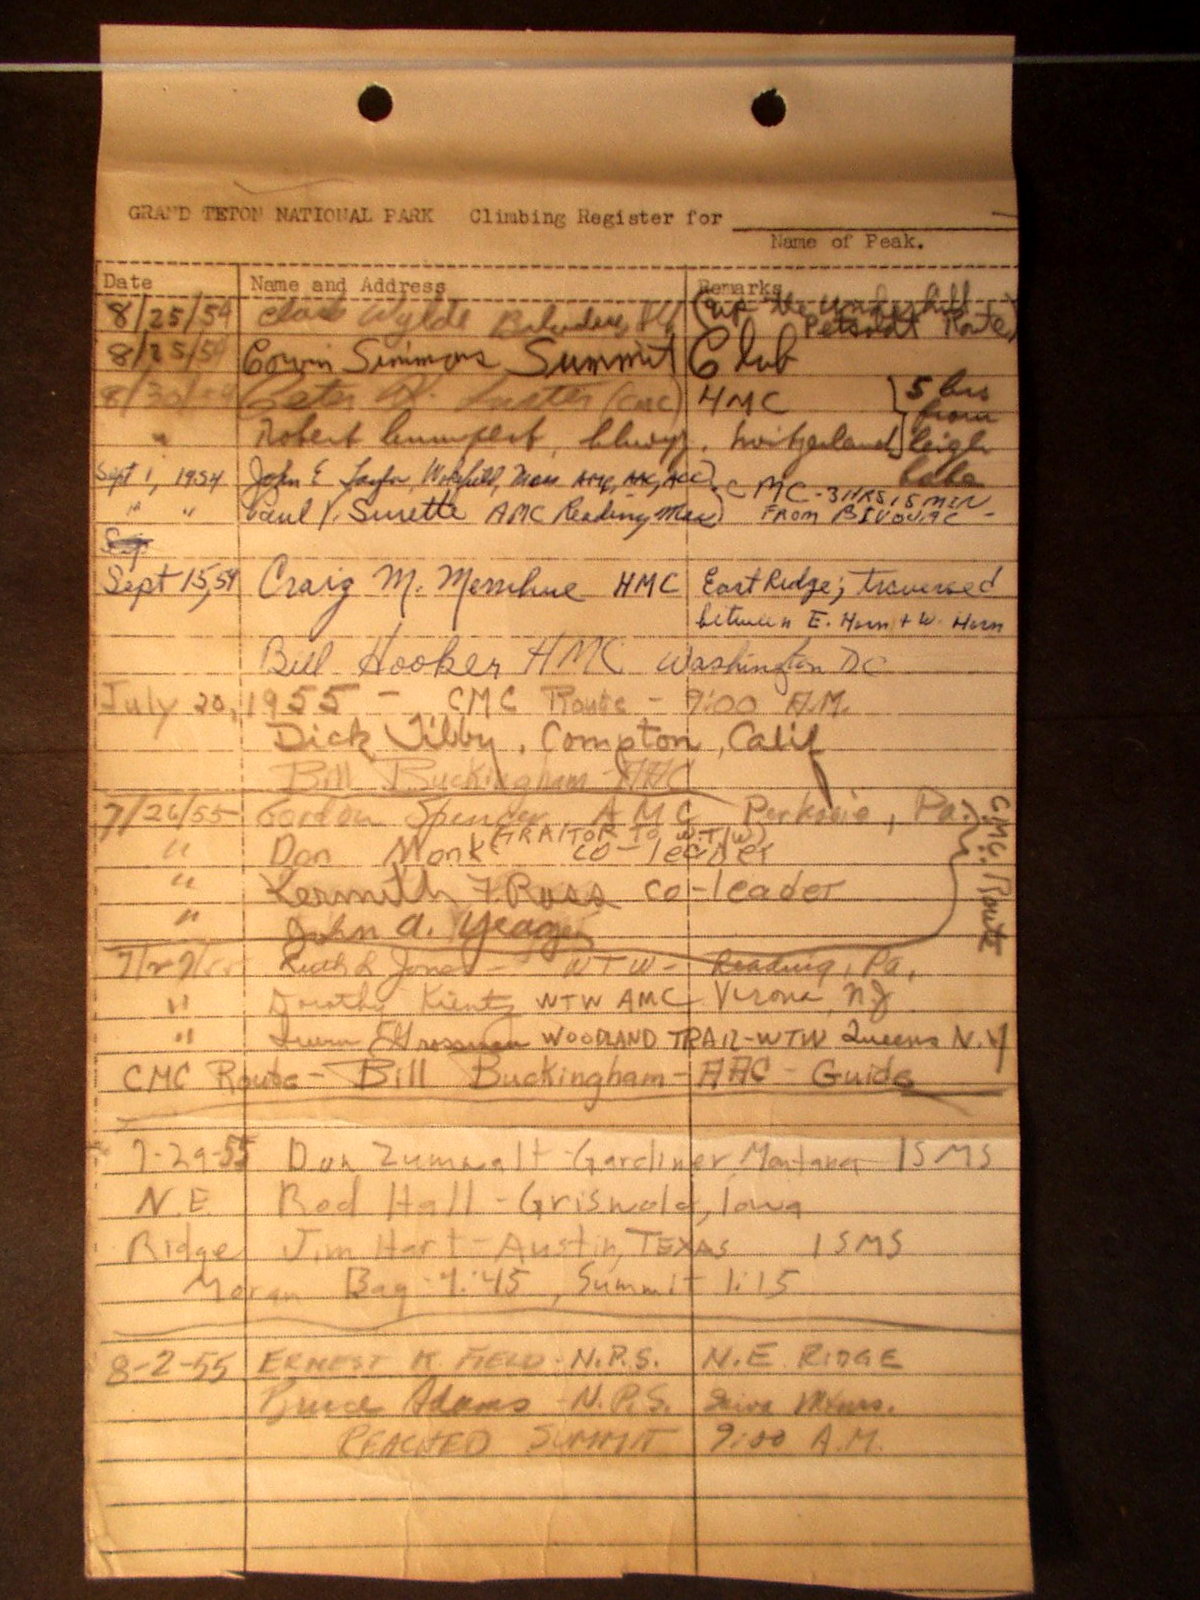 GRAND TETON NATIONAL PARK Climbing Register for
Name of Peak.
Date Name and Address Remarks
8/25/54 Wylde (up the Underhill
Petzoldt Route)
8/25/54 Simmons Summit Club
8/30/54 (CMC) HMC 5 hrs
" Robert , Switzerland from
Leigh
Sept 1, 1954 John E Taylor, Mass AMC, AAC, ACC CMC - 3 HRS, 15 MIN
" " Paul Surette AMC Reading Mass FROM BIVOUAC -
Sep
Sept 15, 54 Craig M. Merrihue HMC East Ridge; traversed
between E. Horn + W. Horn
Bill Hooker HMC Washington DC
July 20, 1955 - CMC Route - 9:00 A.M.
Dick Tibby, Compton, Calif
Bill Buckingham - AAC
7/26/55 Gordon Spencer AMC Perkasie, Pa.
(TRAITOR TO W.T.W)
" Don Monk co-leader
" Kermith F. Ross co-leader
" John A. Yeager
CMC. Route
7/27/55 Ruth L Jones - WTW - Reading, Pa.
" Dorothy Kientz WTW AMC Verona, NJ
" Grossman WOODLAND TRAIL-WTW Queens N.Y
CMC Route - Bill Buckingham - AAC - Guide
7-29-55 Don Zumwalt - Gardiner, Montana ISMS
N.E. Rod Hall - Griswold, Iowa
Ridge Jim Hart - Austin, TEXAS ISMS
Moran Bay 4:45, Summit 1:15
8-2-55 ERNEST K. FIELD - N.P.S. N.E. RIDGE
Bruce Adams - N.P.S.
REACHED SUMMIT 9:00 A.M.